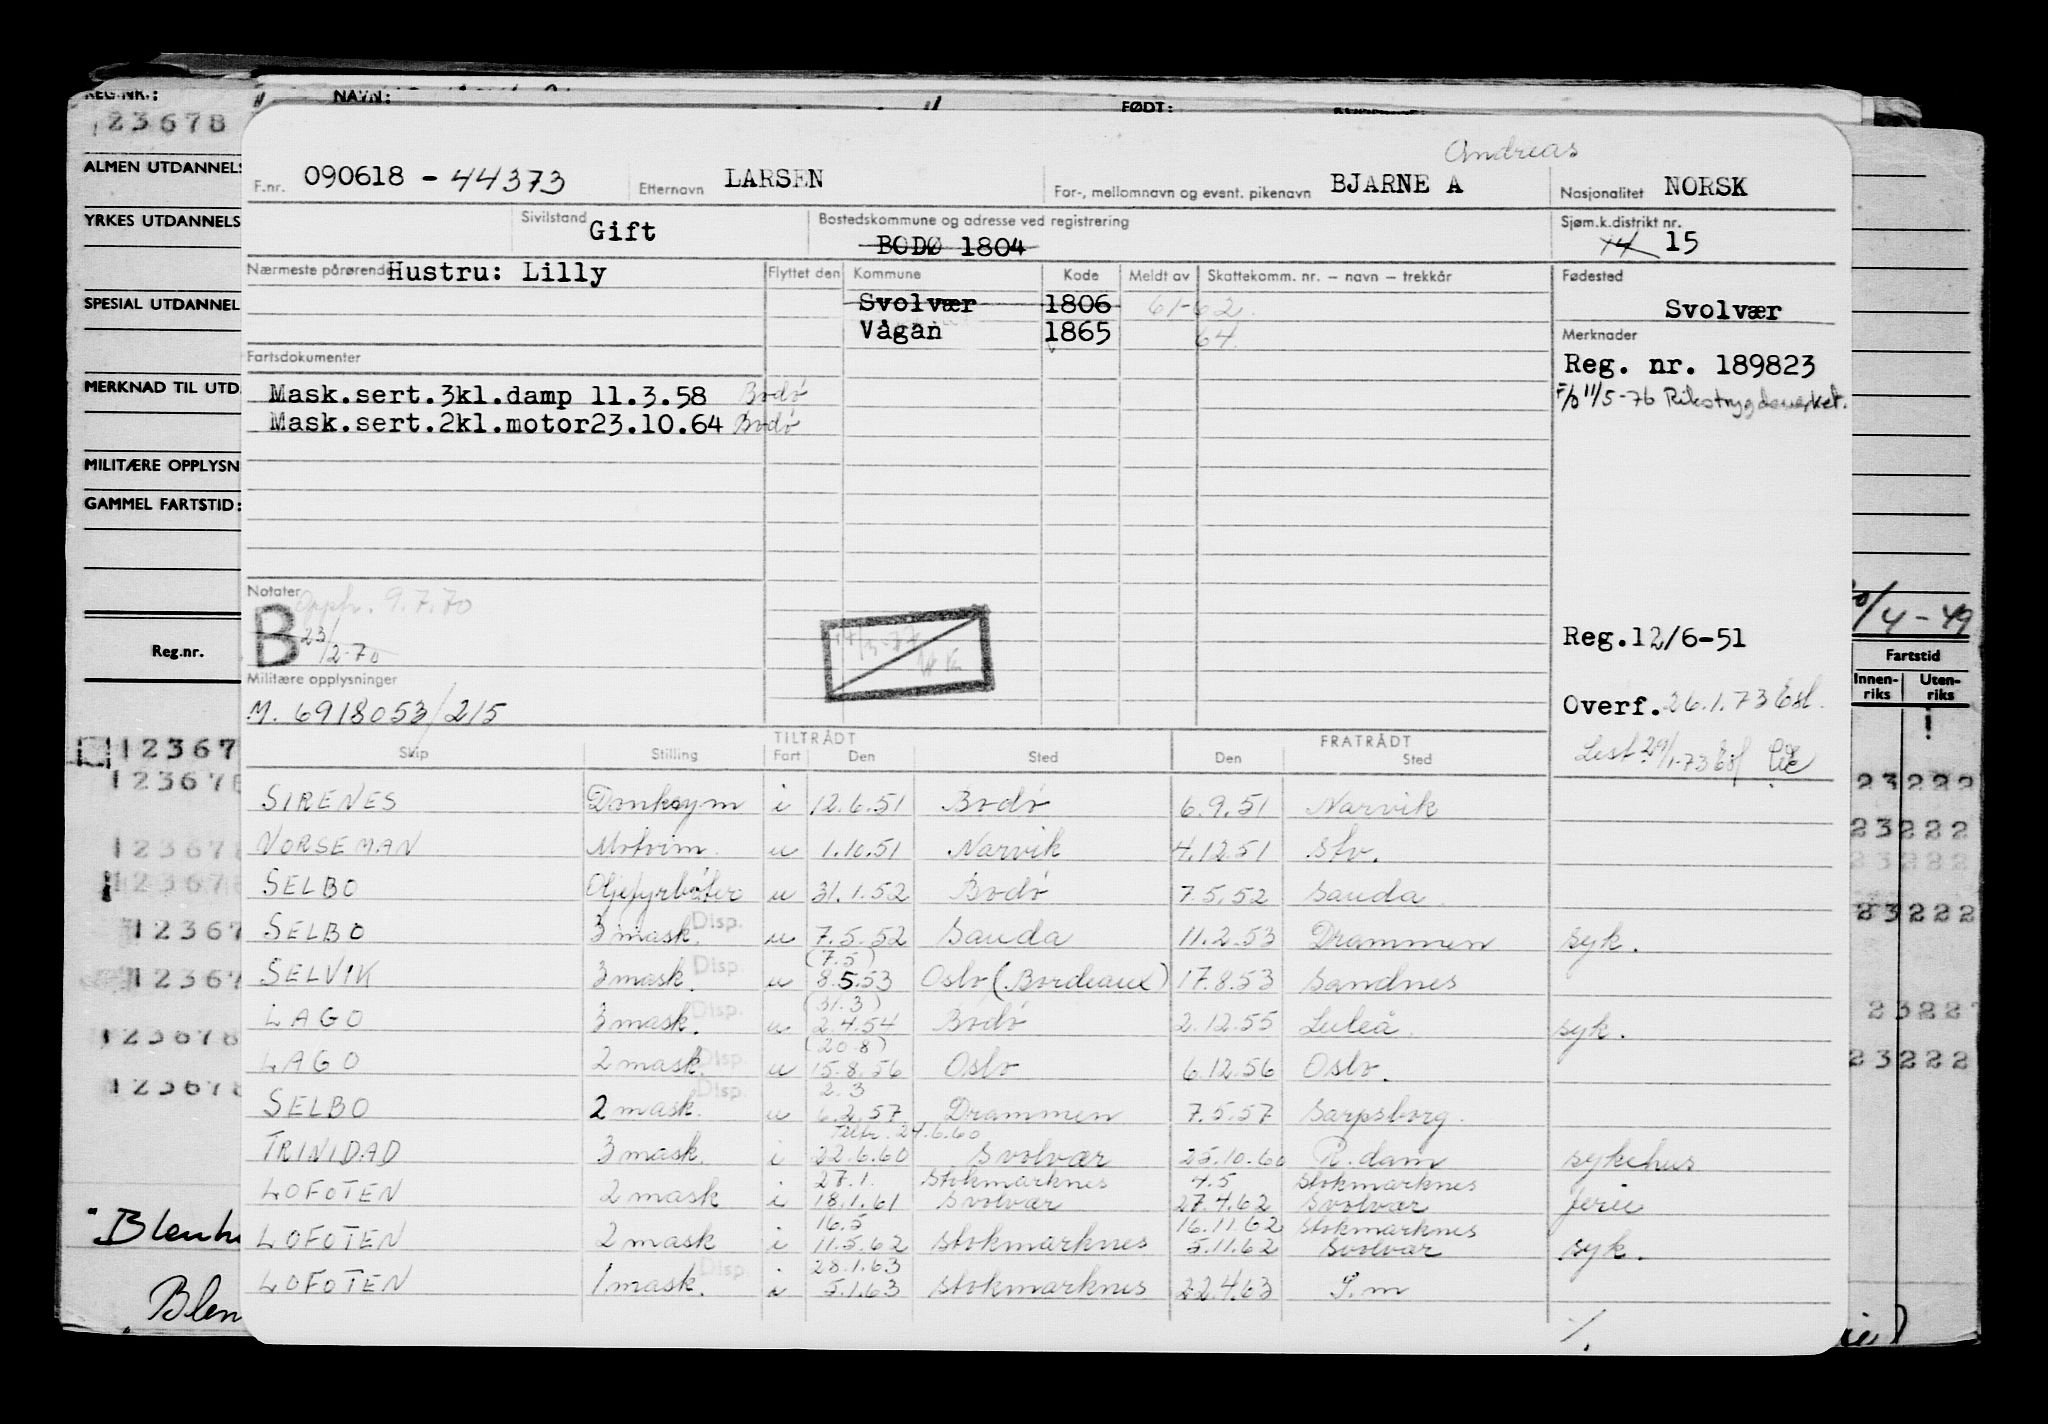 REG.NR.: NAVN: FØDT:
123678
ALMEN UTDANNELS
YRKES UTDANNELS
SPESIAL UTDANNEL
MERKNAD TIL UTD.
MILITÆRE OPPLYSN
GAMMEL FARTSTID:
Reg.nr.
Andreas
F.nr. 090618 - 44373 Etternavn LARSEN For-, mellomnavn og event. pikenavn BJARNE A Nasjonalitet NORSK
Sivilstand Gift Bostedskommune og adresse ved registrering BODØ 1804 Sjøm.k.distrikt nr. 14 15
Nærmeste pårørende Hustru: Lilly Flyttet den Kommune Kode Meldt av Skattekomm. nr. – navn – trekkår Fødested
Svolvær 1806 61-62. Svolvær
Vågan 1865 64. Merknader
Fartsdokumenter Reg. nr. 189823
Mask.sert.3kl.damp 11.3.58 Bodø F/O 11/5-76 Rikstrygdeverket.
Mask.sert.2kl.motor23.10.64 Bodø
Notater Opph. 9.7.70
B 23/2-70
Reg.12/6-51
Militære opplysninger
M. 6918053/215 Overf. 26.1.73 Esl.
TILTRÅDT FRATRÅDT
Skip Stilling Fart Den Sted Den Sted
SIRENES Donkeym i 12.6.51 Bodø 6.9.51 Narvik
NORSEMAN Motorm. u 1.10.51 Narvik 4.12.51 Stv.
SELBO Oljefyrbøter u 31.1.52 Bodø 7.5.52 Sauda
SELBO 3 mask. Disp. u 7.5.52 Sauda 11.2.53 Drammen syk.
(7.5)
SELVIK 3 mask. Disp u 8.5.53 Oslo (Bordeaux) 17.8.53 Sandnes
(31.3)
LAGO 3 mask. Disp. u 2.4.54 Bodø 2.12.55 Luleå. syk.
(20.8)
LAGO 2 mask. Disp. u 15.8.56 Oslo 6.12.56 Oslo.
2.3
SELBO 2 mask. Disp. u 6.2.57 Drammen 7.5.57 Sarpsborg.
Tiltr. 24.6.60
TRINIDAD 3 mask. i 22.6.60 Svolvær 25.10.60 R.dam sykehus
27.1. Stokmarknes 4.5 Stokmarknes
LOFOTEN 2 mask i 18.1.61 Svolvær 27.4.62 Svolvær ferie
16.5 16.11.62 Stokmarknes
LOFOTEN 2 mask i 11.5.62 Stokmarknes 5.11.62 Svolvær syk.
28.1.63
LOFOTEN 1 mask. Disp. i 5.1.63 Stokmarknes 22.4.63 S.m
/4-49
Fartstid
Innen-riks Uten-riks
Blen